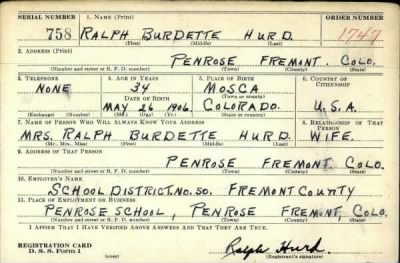 SERIAL NUMBER 1. NAME (Print) ORDER NUMBER
758 RALPH BURDETTE HURD 1747
(First) (Middle) (Last)
2. ADDRESS (Print)
PENROSE FREMONT. COLO.
(Number and street or R. F. D. number) (Town) (County) (State)
3. TELEPHONE 4. AGE IN YEARS 5. PLACE OF BIRTH 6. COUNTRY OF CITIZENSHIP
NONE 34 MOSCA
DATE OF BIRTH (Town or county)
MAY 26 1906. COLORADO. U.S.A.
(Exchange) (Number) (Mo.) (Day) (Yr.) (State or country)
7. NAME OF PERSON WHO WILL ALWAYS KNOW YOUR ADDRESS 8. RELATIONSHIP OF THAT PERSON
MRS. RALPH BURDETTE HURD. WIFE.
(Mr., Mrs., Miss) (First) (Middle) (Last)
9. ADDRESS OF THAT PERSON
PENROSE FREMONT COLO.
(Number and street or R. F. D. number) (Town) (County) (State)
10. EMPLOYER'S NAME
SCHOOL DISTRICT. NO. 50. FREMONT COUNTY
11. PLACE OF EMPLOYMENT OR BUSINESS
PENROSE SCHOOL, PENROSE FREMONT, COLO.
(Number and street or R. F. D. number) (Town) (County) (State)
I AFFIRM THAT I HAVE VERIFIED ABOVE ANSWERS AND THAT THEY ARE TRUE.
REGISTRATION CARD
D. S. S. Form 1 (over) Ralph Hurd
(Registrant's signature)